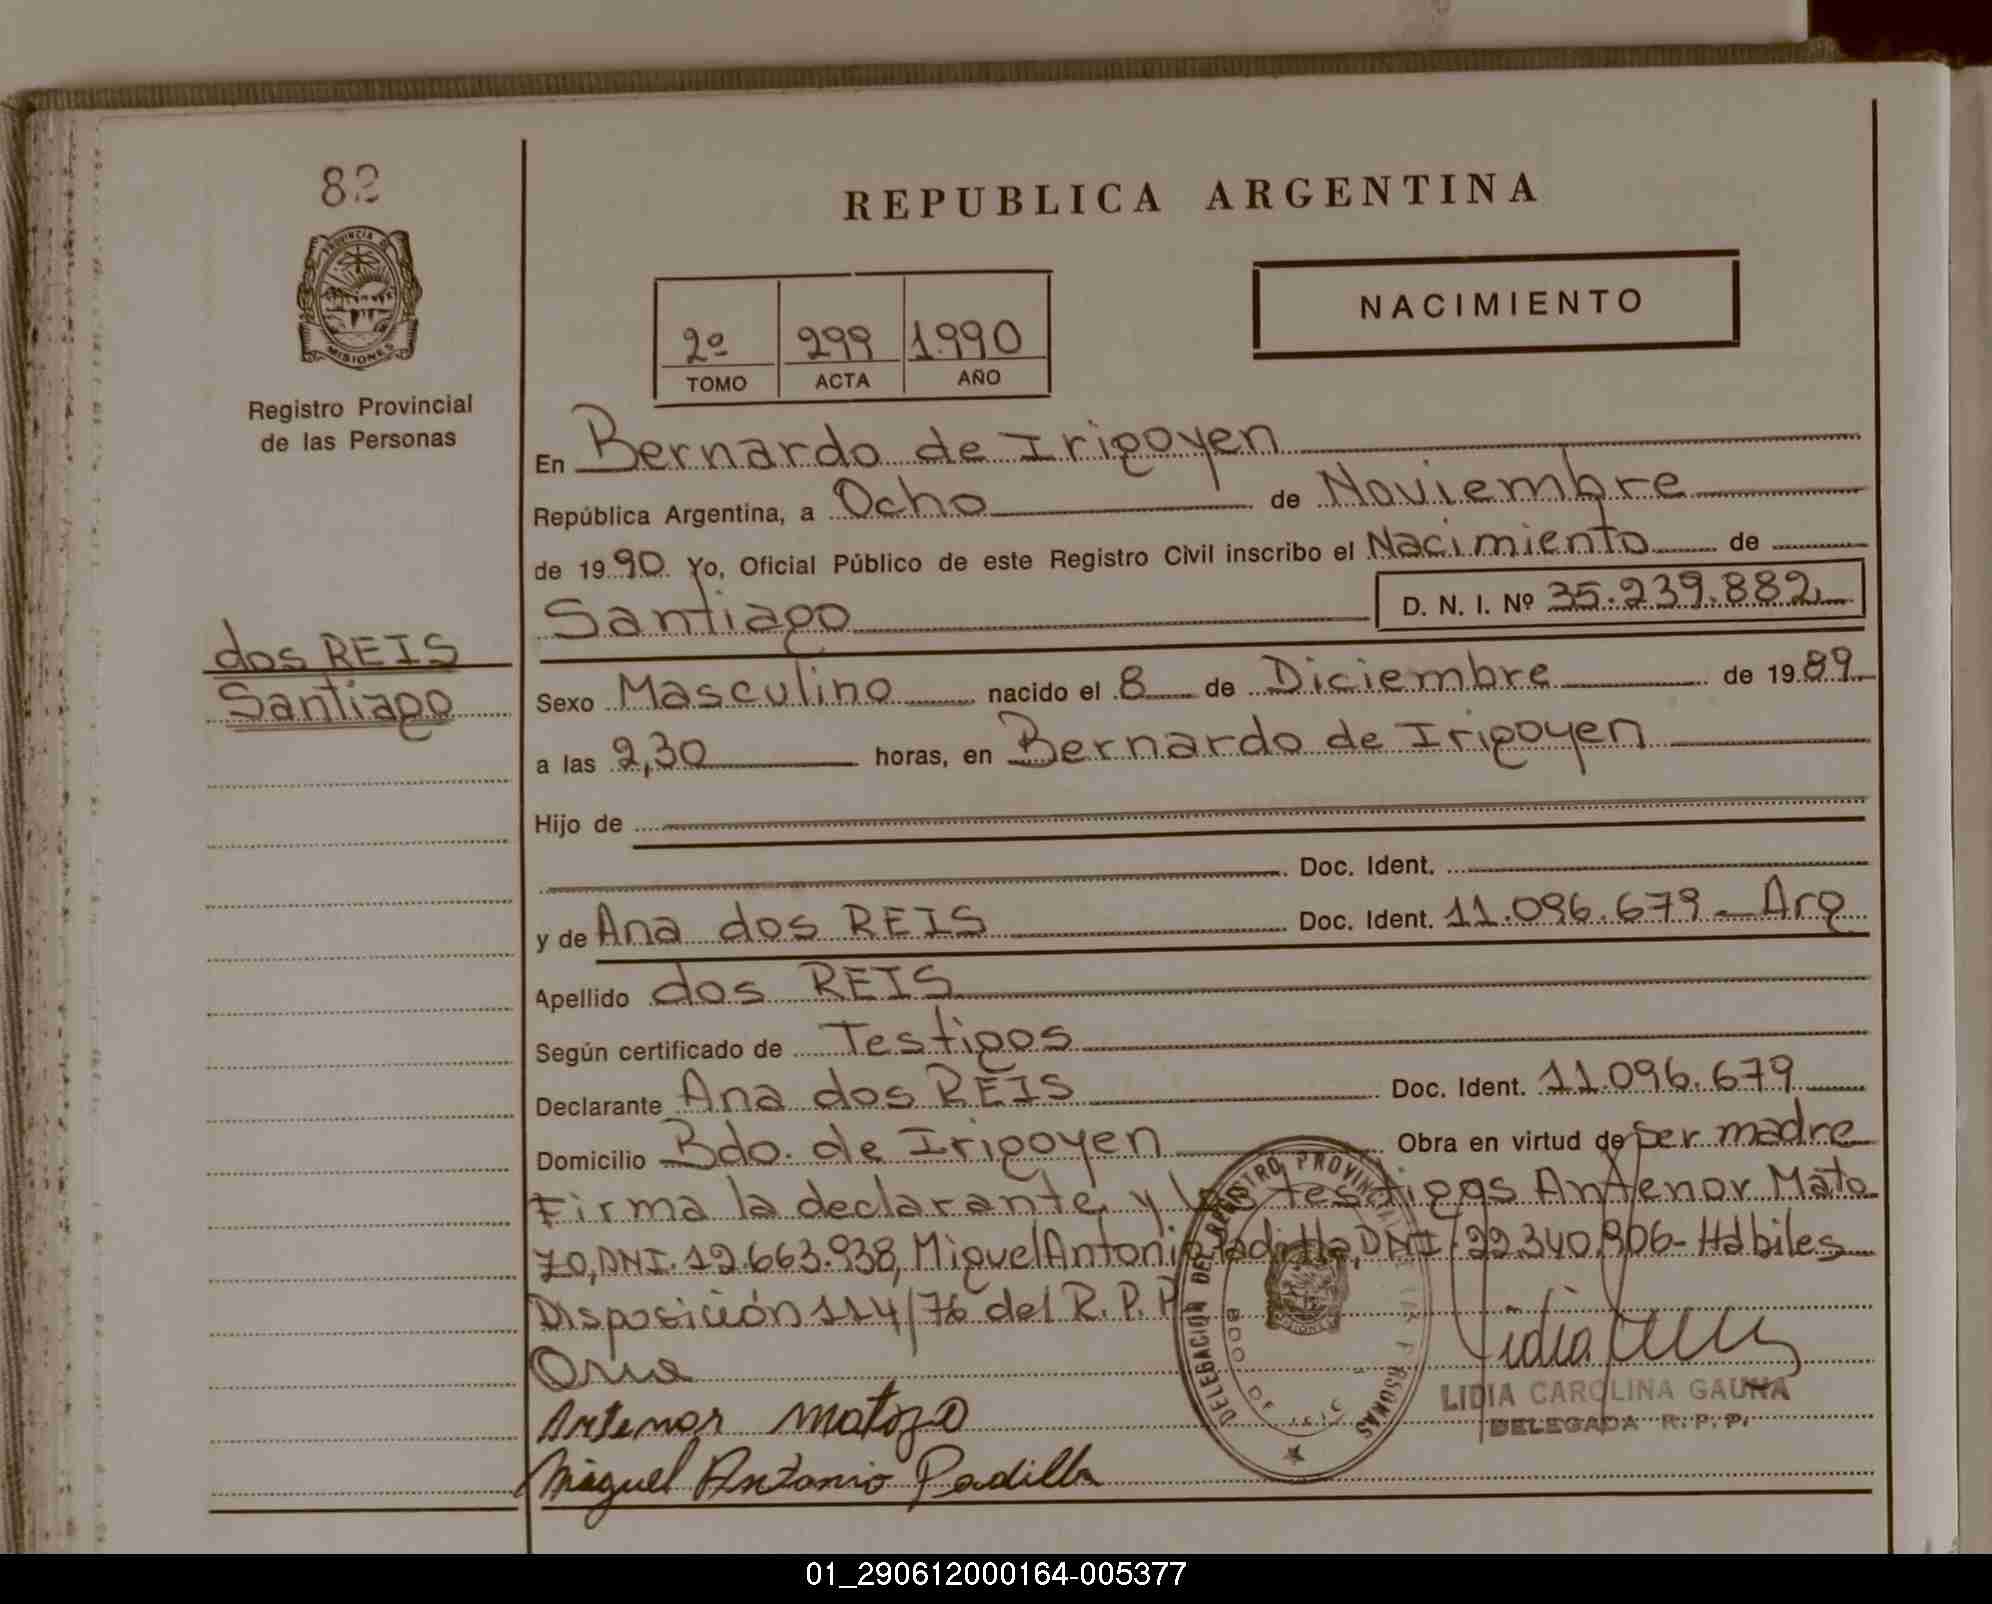 82
PROVINCIA DE
MISIONES
Registro Provincial
de las Personas
dos REIS
Santiago
REPUBLICA ARGENTINA
NACIMIENTO
2º 299 1.990
TOMO ACTA AÑO
En Bernardo de Irigoyen
República Argentina, a Ocho de Noviembre
de 1990 Yo, Oficial Público de este Registro Civil inscribo el Nacimiento de
Santiago D. N. I. Nº 35.239.882
Sexo Masculino nacido el 8 de Diciembre de 1989
a las 2,30 horas, en Bernardo de Irigoyen
Hijo de
Doc. Ident.
y de Ana dos REIS Doc. Ident. 11.096.679 - Arg
Apellido dos REIS
Según certificado de Testigos
Declarante Ana dos REIS Doc. Ident. 11.096.679
Domicilio Bdo. de Irigoyen Obra en virtud de ser madre
Firma la declarante y los testigos Antenor Mato
zo, DNI. 12.663.938, Miguel Antonio Padilla, DNI 22.340.906- Hábiles
Disposición 114/76 del R. P. P
Ana
Antenor Matozo
Miguel Antonio Padilla
DELEGACION DEL REGISTRO PROVINCIAL DE LAS PERSONAS
BDO
MISIONES
Lidia
LIDIA CAROLINA GAUNA
DELEGADA R. P. P.
01_290612000164-005377